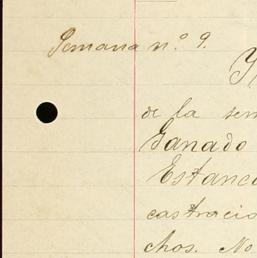 Semana n.° 9.
de la sem
Ganado
Estanc
castracio
chos. No